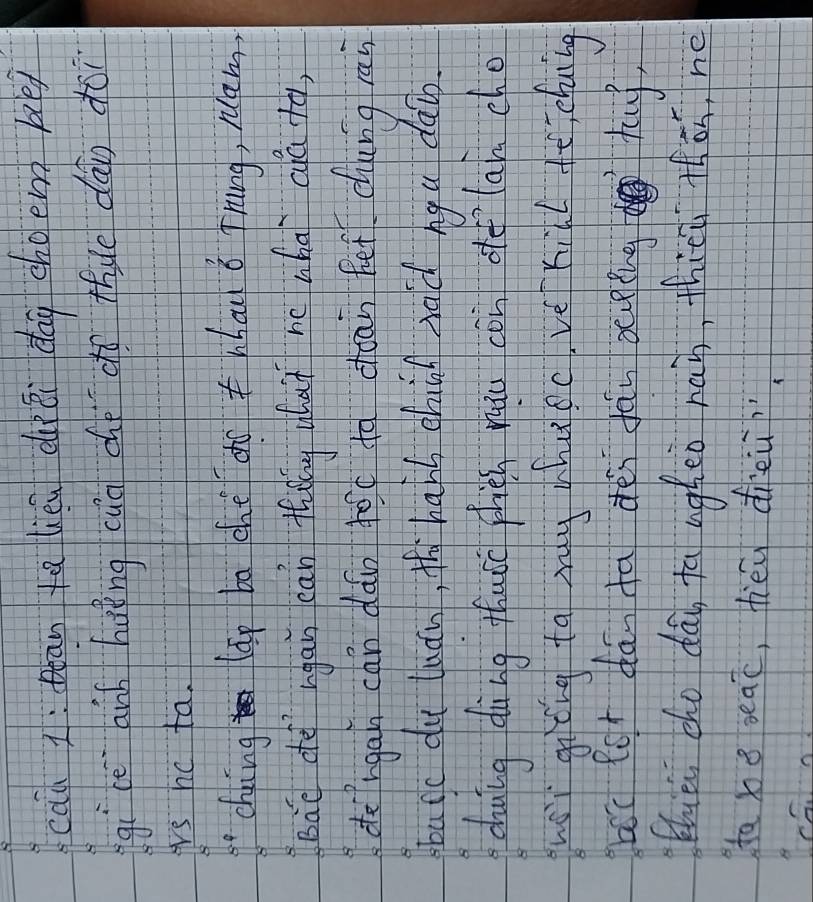 câu 1: Đoạn tư liệu dưới đây cho em biết
gì về ảnh hưởng của chế độ thực dân đối
vs nc ta.
"chúng lập ba chế độ ≠ nhau ở Trung, Nam,
Bắc để ngăn cản thống nhất nc nhà của ta,
để ngăn cản dân tộc ta đoàn kết. chúng ràn
buộc dư luận, thi hành chính sách ngu dân.
chúng dùng thuốc phiện rượu cồn để làm cho
nòi giống ta suy nhược. về kinh tế, chúng
bóc lột dân ta đến tận xương tuỷ,
khiến cho dân ta nghèo nàn, thiếu thốn, nc
ta xơ xác, tiêu điều".